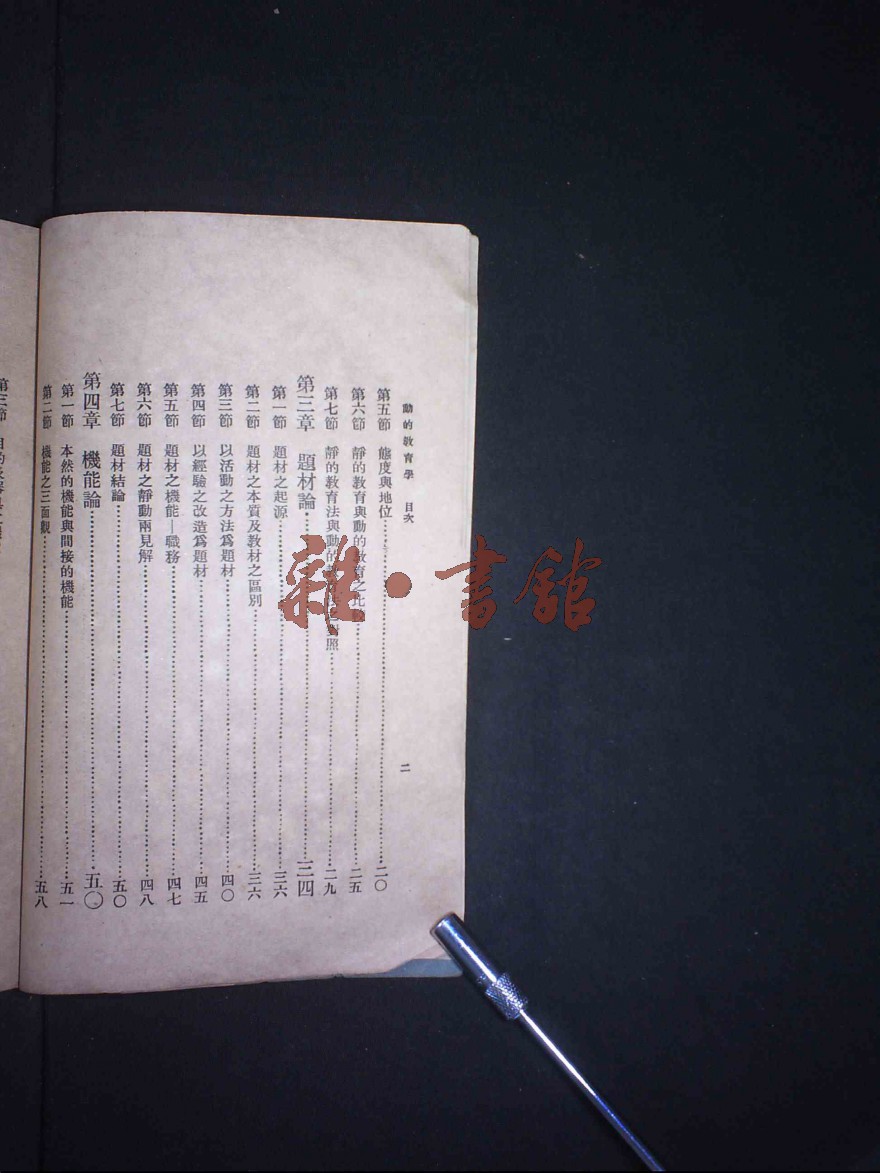 動的教育學 目次 二
第五節 態度與地位……二〇
第六節 靜的教育與動的教育之比……二五
第七節 靜的教育法與動的教 照……二九
第三章 題材論……三四
第一節 題材之起源……三六
第二節 題材之本質及教材之區別……三六
第三節 以活動之方法爲題材……四〇
第四節 以經驗之改造爲題材……四五
第五節 題材之機能—職務……四七
第六節 題材之靜動兩見解……四八
第七節 題材結論……五〇
第四章 機能論……五〇
第一節 本然的機能與間接的機能……五一
第二節 機能之三面觀……五八
第三節
雜·書館